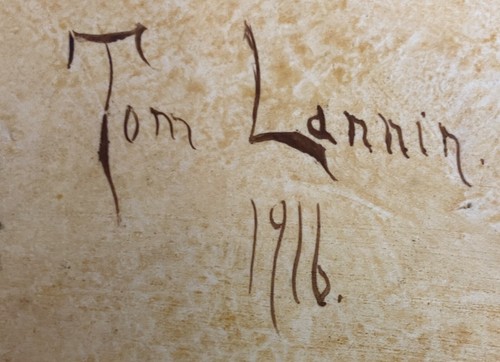 Tom Lannin.
1916.